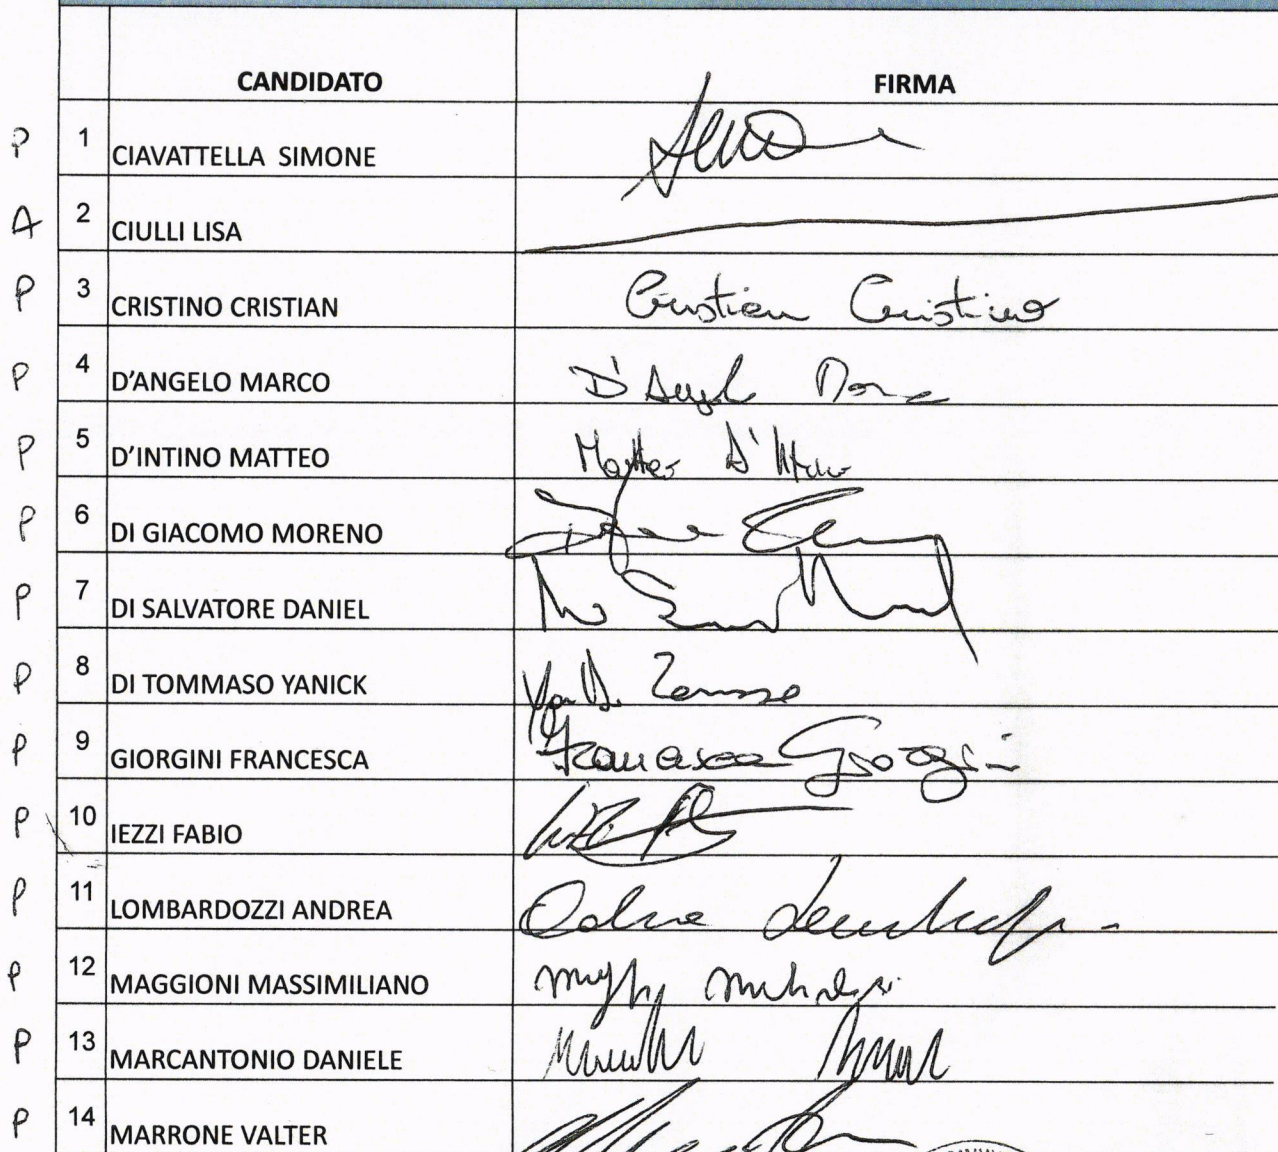 CANDIDATO FIRMA
P 1 CIAVATTELLA SIMONE
A 2 CIULLI LISA
P 3 CRISTINO CRISTIAN Cristian Cristino
P 4 D'ANGELO MARCO D'Angelo Marco
P 5 D'INTINO MATTEO Matteo D'Intino
P 6 DI GIACOMO MORENO
P 7 DI SALVATORE DANIEL
P 8 DI TOMMASO YANICK
P 9 GIORGINI FRANCESCA Francesca Giorgini
P 10 IEZZI FABIO
P 11 LOMBARDOZZI ANDREA
P 12 MAGGIONI MASSIMILIANO
P 13 MARCANTONIO DANIELE
P 14 MARRONE VALTER